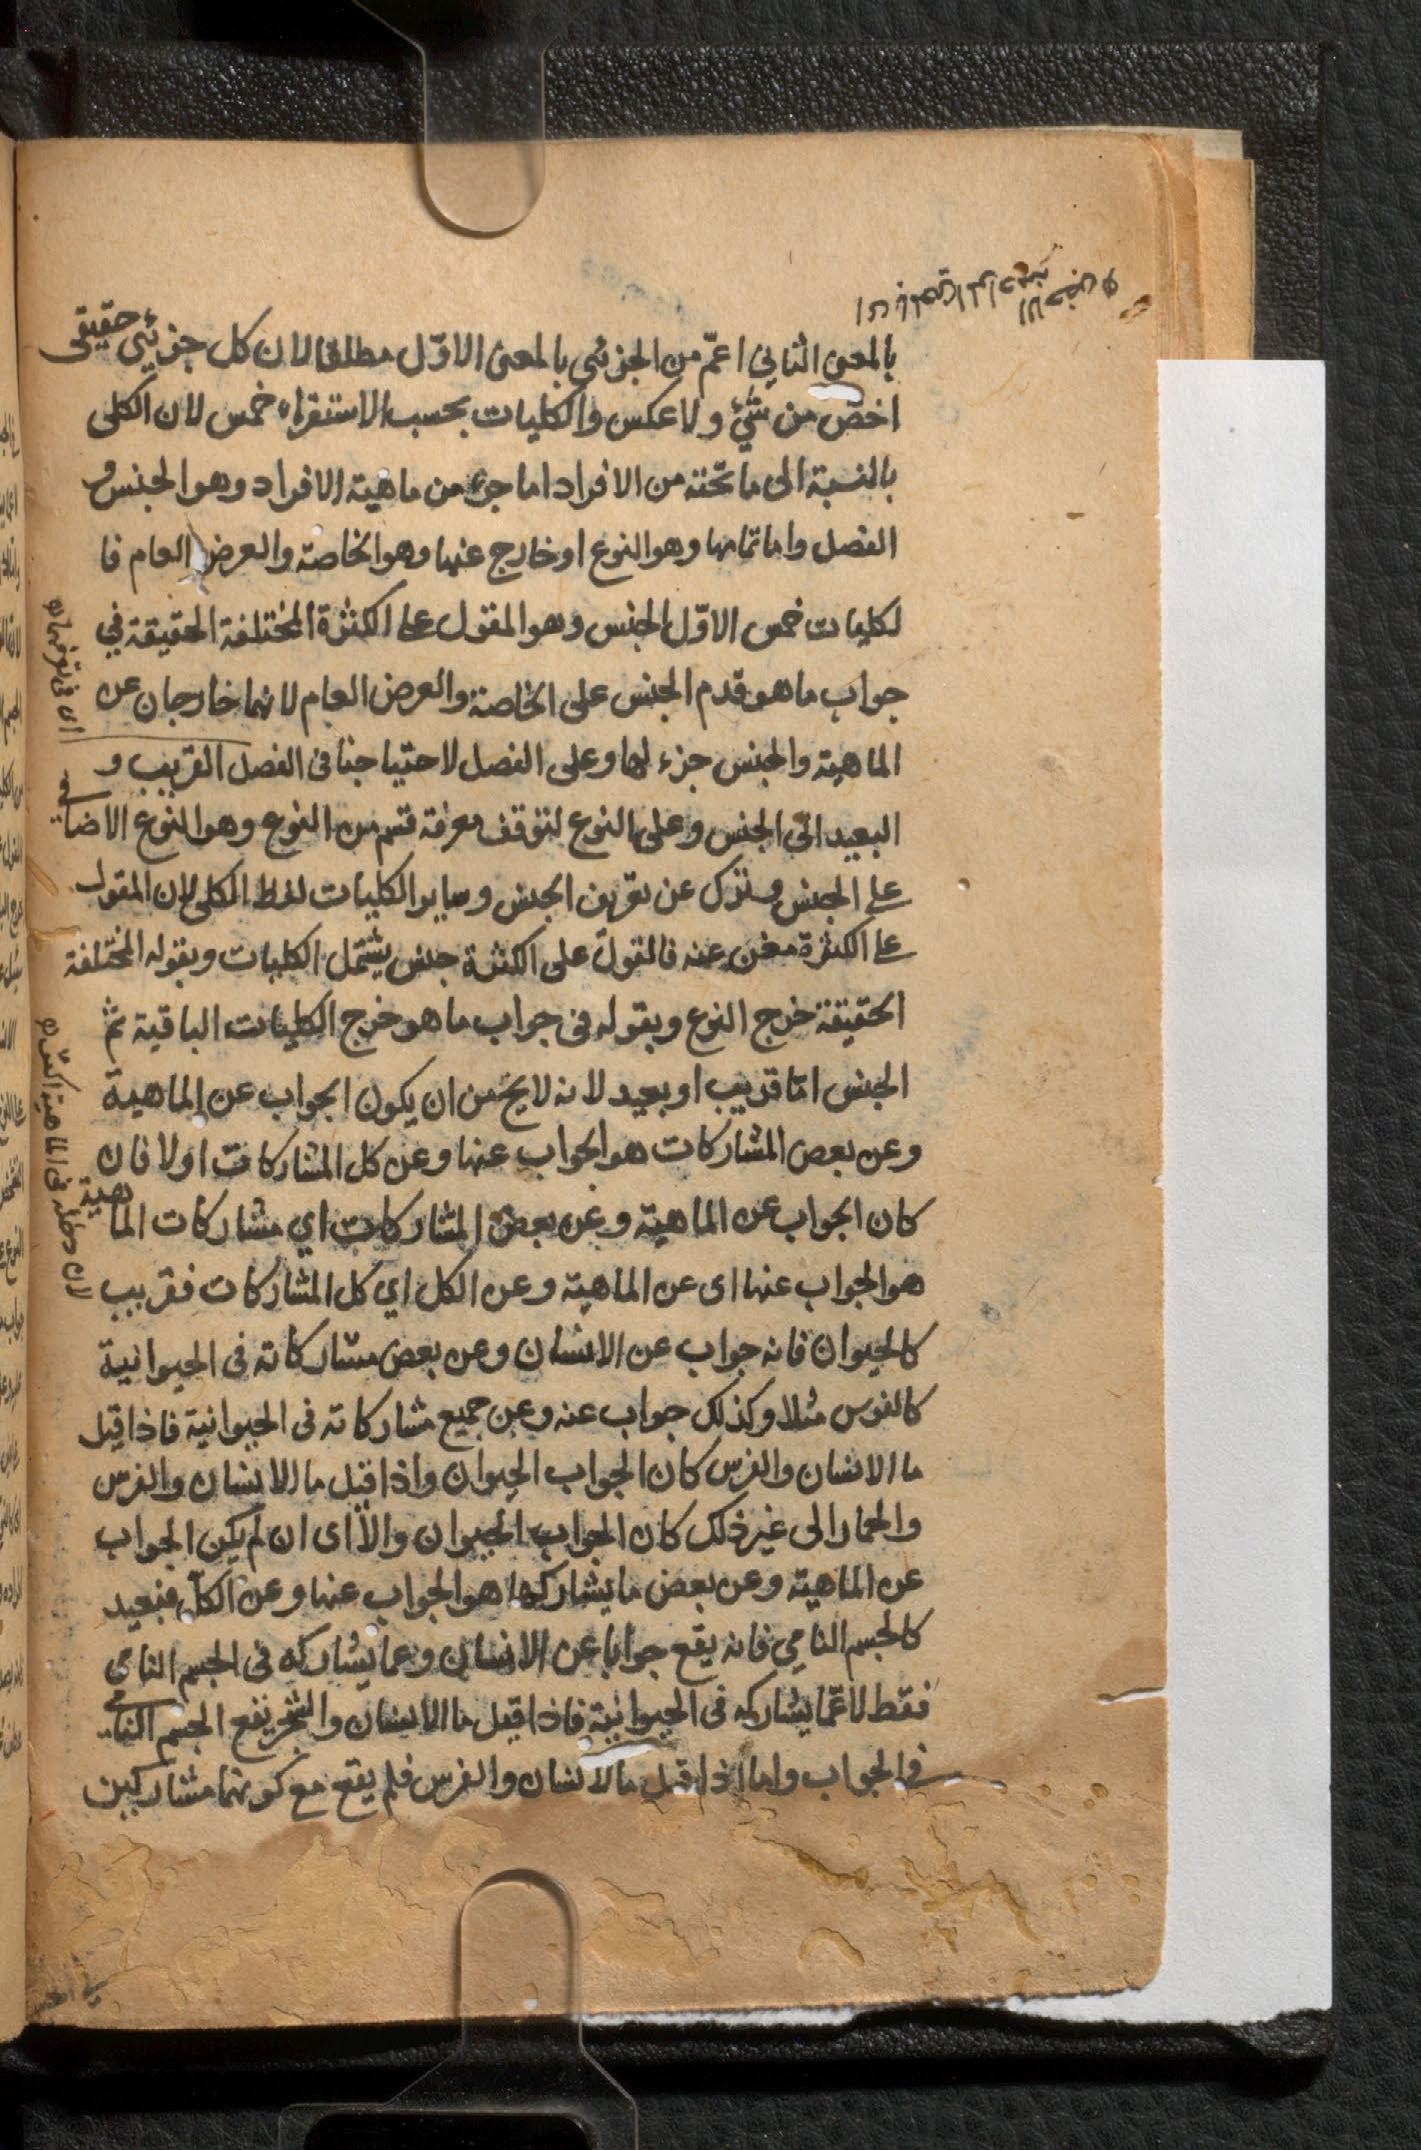 بالمعنى الثاني اعمّ من الجزئي بالمعنى الاوّل مطلقا لان كل جزئي حقيقي
اخصّ من شيء ولا عكس والكليات بحسب الاستقراء خمس لان الكلى
بالنسبة الى ما تحته من الافراد اما جزء من ماهية الافراد وهو الجنس و
الفصل واما تمامها وهو النوع او خارج عنها وهو الخاصة والعرض العام فا
لكليات خمس الاوّل الجنس وهو المقول على الكثرة المختلفة الحقيقة في
جواب ما هو قدم الجنس على الخاصة والعرض العام لانهما خارجان عن
الماهية والجنس جزء لها وعلى الفصل لاحتياجنا فى الفصل القريب و
البعيد الى الجنس وعلى النوع لتوقف معرفة قسم من النوع وهو النوع الاضافي
على الجنس وترك عن تعريف الجنس وساير الكليات لفظ الكلى لان المقول
على الكثرة مغن عنه فالمقول على الكثرة جنس يشتمل الكليات وبقوله المختلفة
الحقيقة خرج النوع وبقوله فى جواب ما هو خرج الكليات الباقية ثم
الجنس امّا قريب او بعيد لانه لا يخ من ان يكون الجواب عن الماهية
وعن بعض المشاركات هو الجواب عنها وعن كل المشاركات اولا فان
كان الجواب عن الماهية وعن بعض المشاركات اي مشاركات الماهية
هو الجواب عنها اى عن الماهية وعن الكل اي كل المشاركات فقريب
كالحيوان فانه جواب عن الانسان وعن بعض مشاركاته فى الحيوانية
كالفرس مثلا وكذلك جواب عنه وعن جميع مشاركاته فى الحيوانية فاذا قيل
ما الانسان والفرس كان الجواب الحيوان واذا قيل ما الانسان والفرس
والحمار الى غير ذلك كان الجواب الحيوان والّا اى ان لم يكن الجواب
عن الماهية وعن بعض ما يشاركها هو الجواب عنها وعن الكلّ فبعيد
كالجسم النامي فانه يقع جوابا عن الانسان وعما يشاركه فى الجسم النامى
فقط لا عمّا يشاركه فى الحيوانية فاذا قيل ما الانسان والشجر يقع الجسم النامي
في الجواب واما اذا قيل ما لانسان والفرس فلم يقع مع كونهما مشاركين
اى فى توقف
لان دخله فى الماهية اكثر